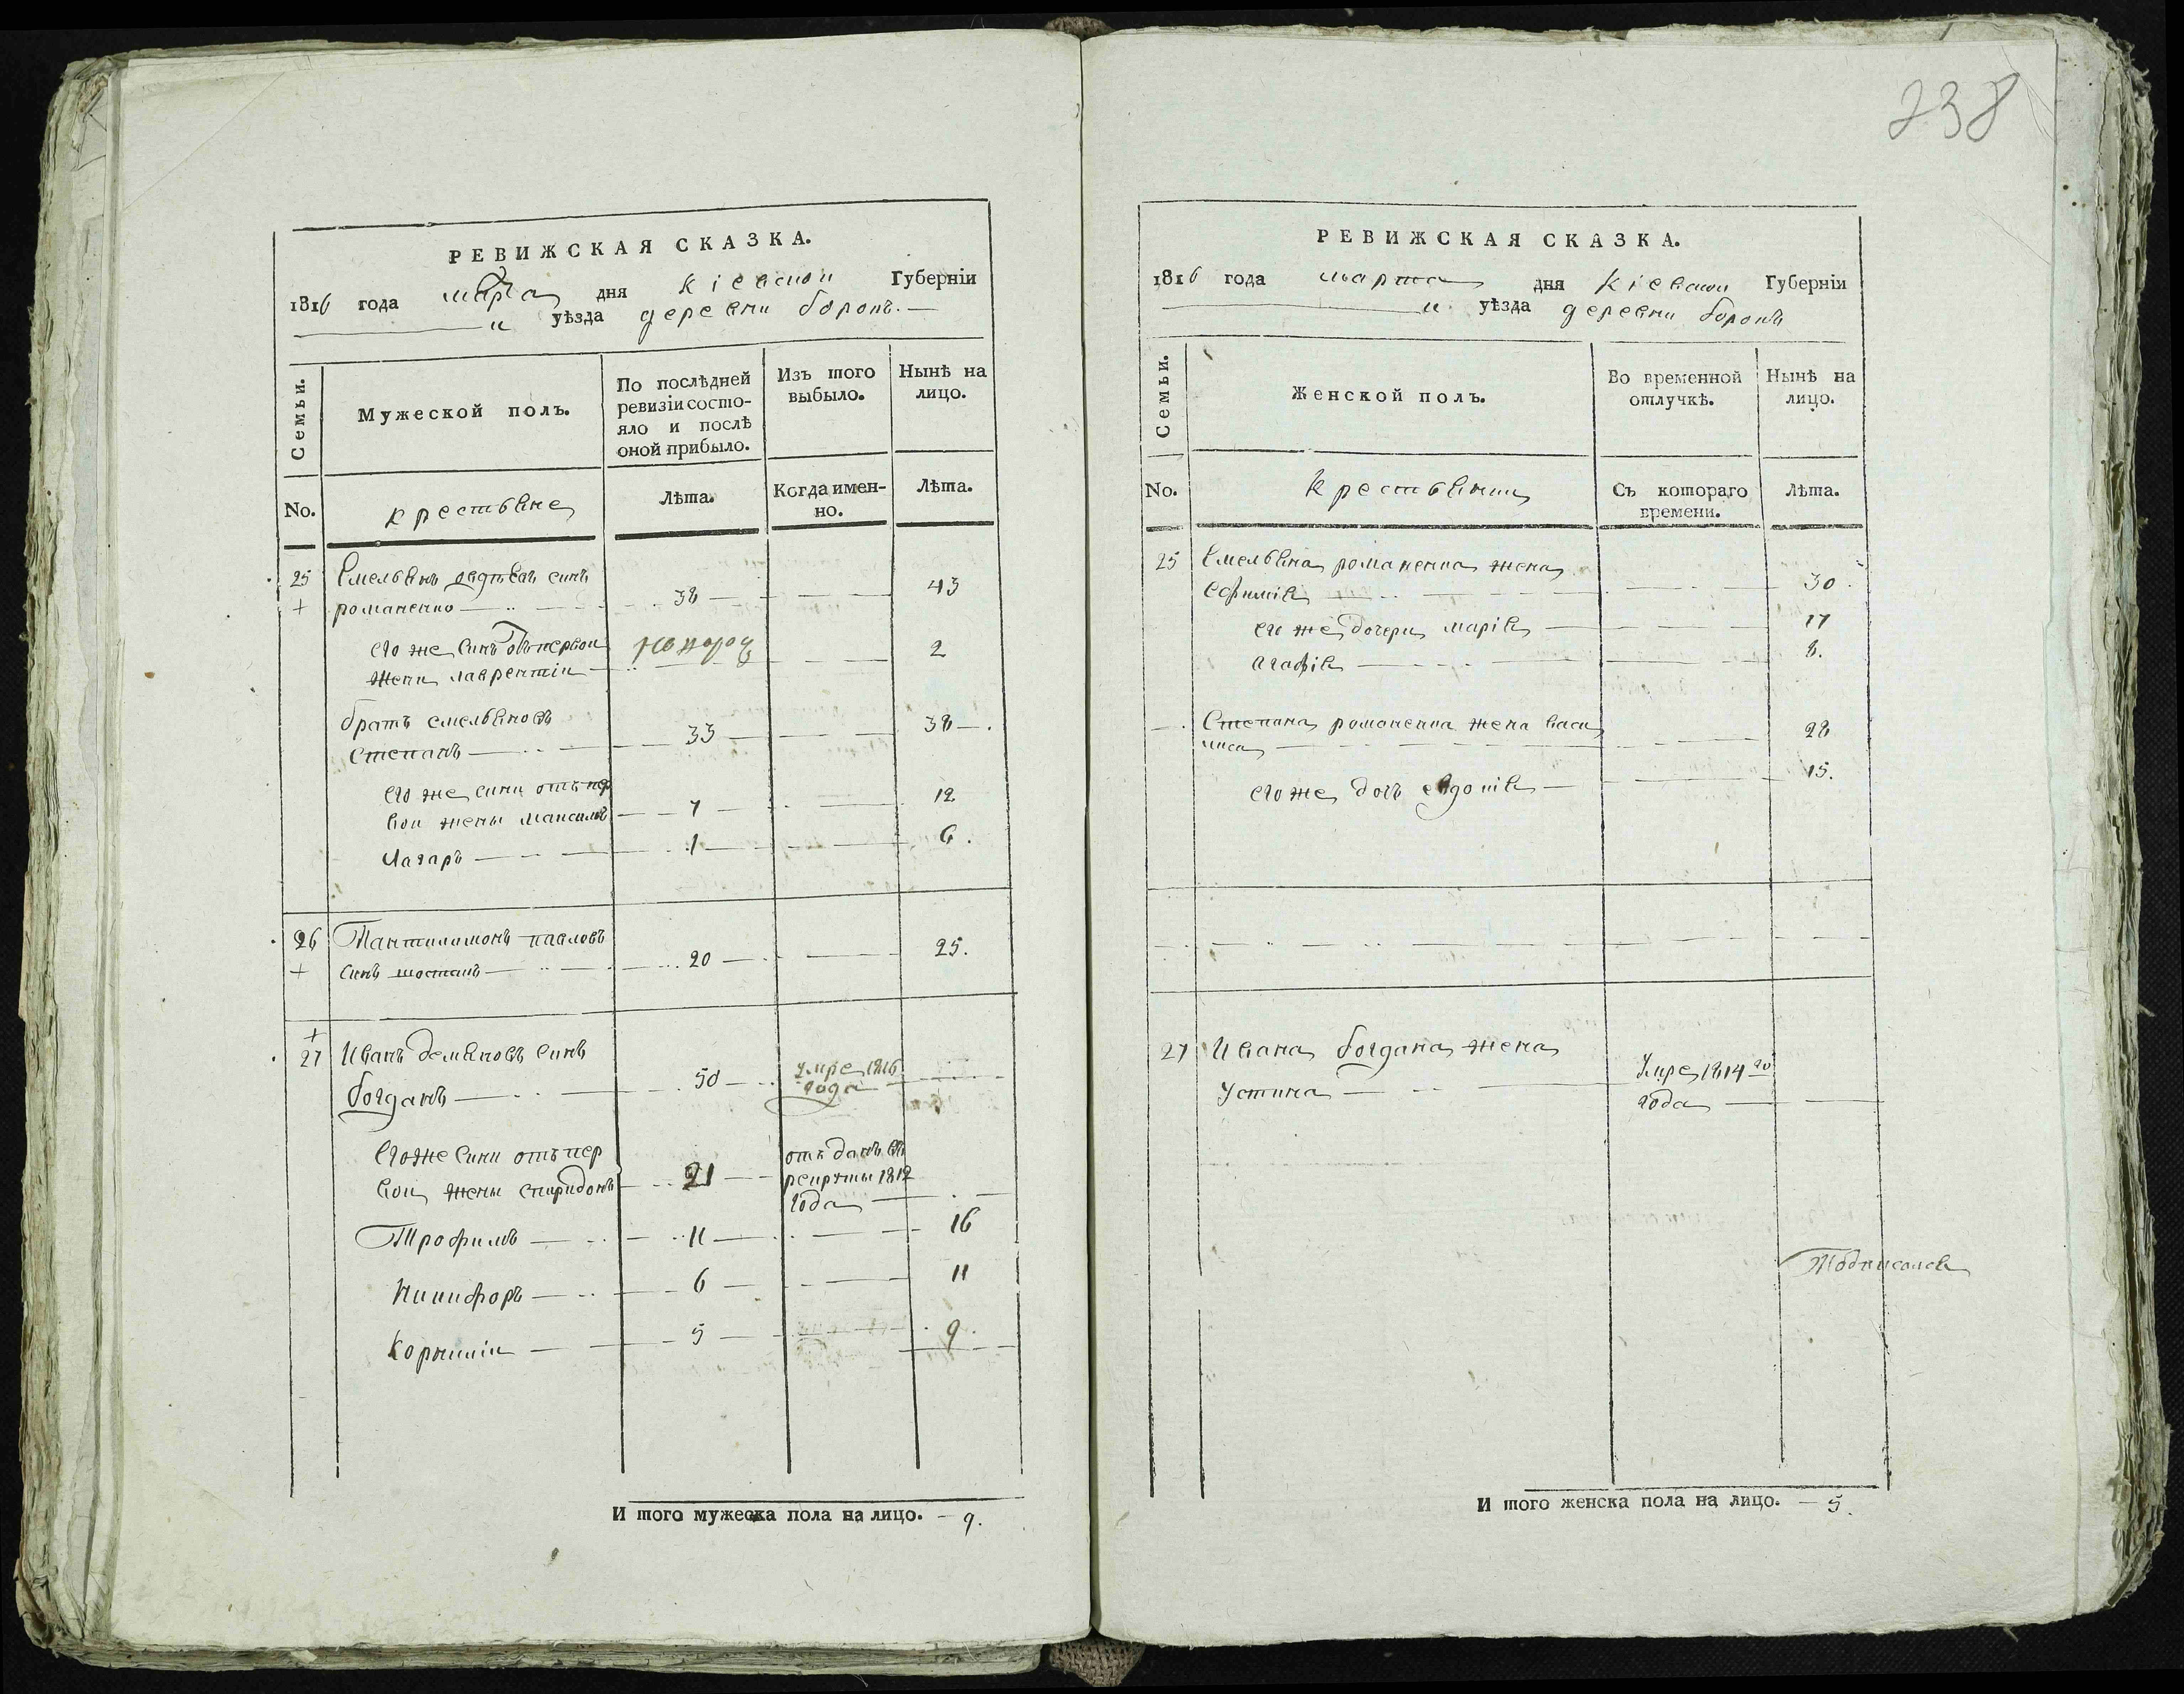 238
РЕВИЖСКАЯ СКАЗКА.
1816 года марта дня Кіевской Губерніи
уѣзда деревни боровъ.
Семьи.
Мужеской полъ.
По послѣдней ревизіи состо-
яло и послѣ
оной прибыло.
Изъ того выбыло.
Нынѣ на лицо.
No.
крестьяне
Лѣта.
Когда имен-
но.
Лѣта.
25 Емельянъ синъ
романенко 38 43
его же синъ отъ первои новорож
жени лаврентіи 2
братъ емельяновъ
Степанъ 33 38
его же сини отъ пер
вои жены максимъ 7 12
Лазаръ 1 6.
26 Пантилимонъ павловъ
синъ шостакъ 20 25.
27 Иванъ демяновъ синъ
богданъ 50 умре 1816 года
его же сини отъ пер
вои жены спиридонъ 21 отъданъ въ рекруты 1812 года
Трофимъ 11 16
Никифоръ 6 11
Корнилій 5 9.
И того мужеска пола на лицо. 9.
РЕВИЖСКАЯ СКАЗКА.
1816 года марта дня Кіевской Губерніи
уѣзда деревни боровъ
Семьи.
Женской полъ.
Во временной отлучкѣ.
Нынѣ на лицо.
No.
крестьянки
Съ котораго времени.
Лѣта.
25 Емельяна романенка жена
Ефимія 30.
его же дочери марія 17
агафія 8.
Степана романенка жена васи
лиса 28
его же дочъ евдокія 15.
27 Ивана богдана жена
Устина умре 1814 го года
Подписался
И того женска пола на лицо. 5.